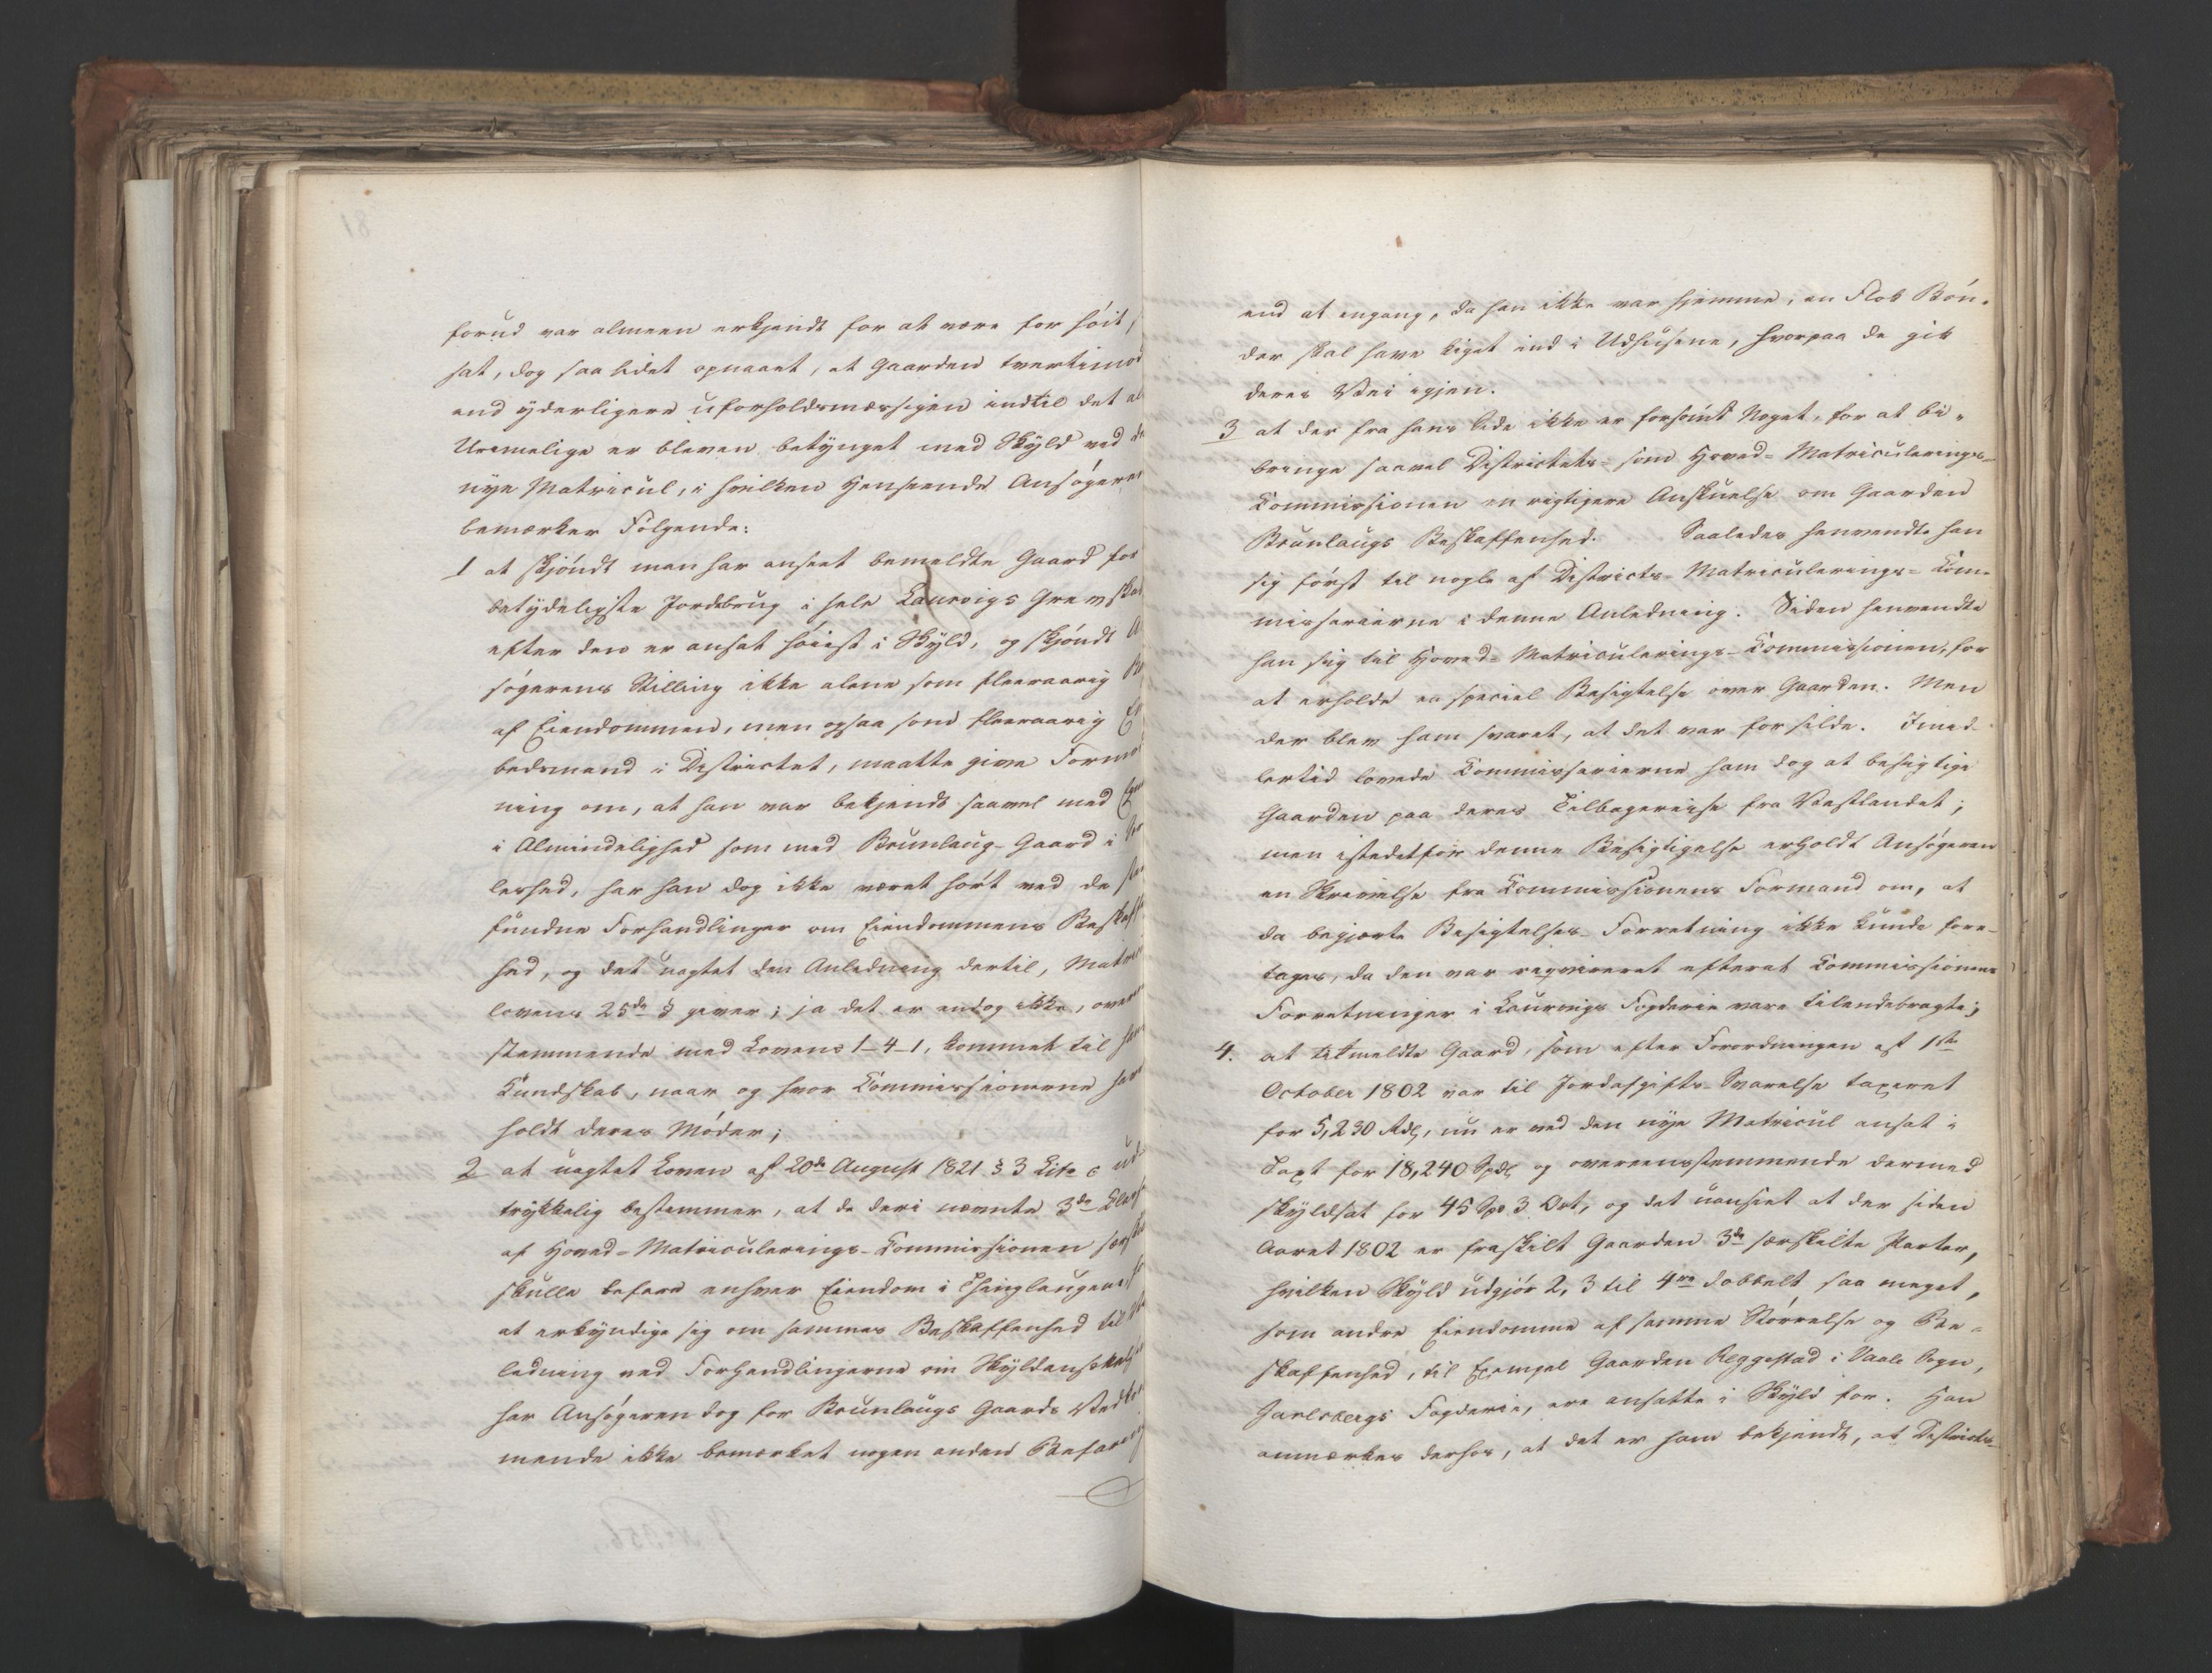 forud var almeen erkjendt for at være for høit
sat, dog saa lidet opnaaet, at Gaarden tvertimod
end yderligere uforholdsmæssigen indtil det
Urimelige er bleven betynget med Skyld ved
nye Matricul, i hvilken Henseende Ansøgeren
bemærker Følgende:
1 at skjøndt man har anseet bemeldte Gaard for
betydeligste Jordebrug i hele Laurvigs Grevskab
efter den er ansat høiest i Skyld, og skjøndt
søgerens Stilling ikke alene som fleeraarig
af Eiendommen, men ogsaa som fleeraarig
bedsmand i Districtet, maatte give Formod
ning om, at han var bekjendt saavel med
i Almindelighed som med Brunlaug-Gaard i
leshed, har han dog ikke været hørt ved de
fundne Forhandlinger om Eiendommens Beskaff
hed, og det uagtet den Anledning dertil, Matricul
lovens 25de § giver; ja det er endog ikke, overeens
stemmende med Lovens 1-4-1, kommet til hans
Kundskab, naar og hvor Commissionerne have
holdt deres Møder;
2 at uagtet Loven af 20de August 1821 § 3 Litr c ud
trykkelig bestemmer, at de deri nævnte 3de
af Hoved-Matriculerings-Commissionen særskilt
skulle befare enhver Eiendom i Thinglaugene for
at erkyndige sig om sammes Beskaffenhed til
ledning ved Forhandlingerne om Skyldansættelse
har Ansøgeren dog for Brunlaugs Gaards Vedkom
mende ikke bemærket nogen anden Befaring
81
end at engang, da han ikke var hjemme, en Flok Bøn-
der skal have kiget ind i Udhusene, hvorpaa de gik
deres Vei igjen.
3 at der fra hans Side ikke er forsømt Noget, for at bi-
bringe saavel Districtets- som Hoved-Matriculerings-
Commissionen en rigtigere Anskuelse om Gaarden
Brunlaugs Beskaffenhed. Saaledes henvendte han
sig først til nogle af Districts-Matriculerings-Com-
missairerne i denne Anledning. Siden henvendte
han sig til Hoved-Matriculerings-Commissionen, for
at erholde en speciel Besigtelse over Gaarden. Men
der blev ham svaret, at det var for silde. Imid-
lertid lovede Commissairerne ham dog at besigtige
Gaarden paa deres Tilbagereise fra Vestlandet;
men istedetfor denne Besigtigelse erholdt Ansøgeren
en Skrivelse fra Commissionens Formand om, at
da begjærte Besigtelses-Forretning ikke kunde fore-
tages, da den var reqvireret efterat Commissionens
Forretninger i Laurvigs Fogderie vare tilendebragte;
4. at bemeldte Gaard, som efter Forordningen af 1ste
October 1802 var til Jordafgifts-Svarelse taxeret
for 5,230 Rdl, nu er ved den nye Matricul ansat i
Taxt for 18,240 Spdl og overeensstemmende dermed
skyldsat for 45 Spd 3 Ort, og det uanseet at der siden
Aaret 1802 er fraskilt Gaarden 3de særskilte Parter,
hvilken Skyld udgjør 2, 3 til 4re dobbelt saa meget,
som andre Eiendomme af samme Størrelse og Be-
skaffenhed, til Exempel Gaarden Reggestad i Vaale Sogn,
Jarlsbergs Fogderie, ere ansatte i Skyld for. Han
anmærker derhos, at det er ham bekjendt, at Districts-